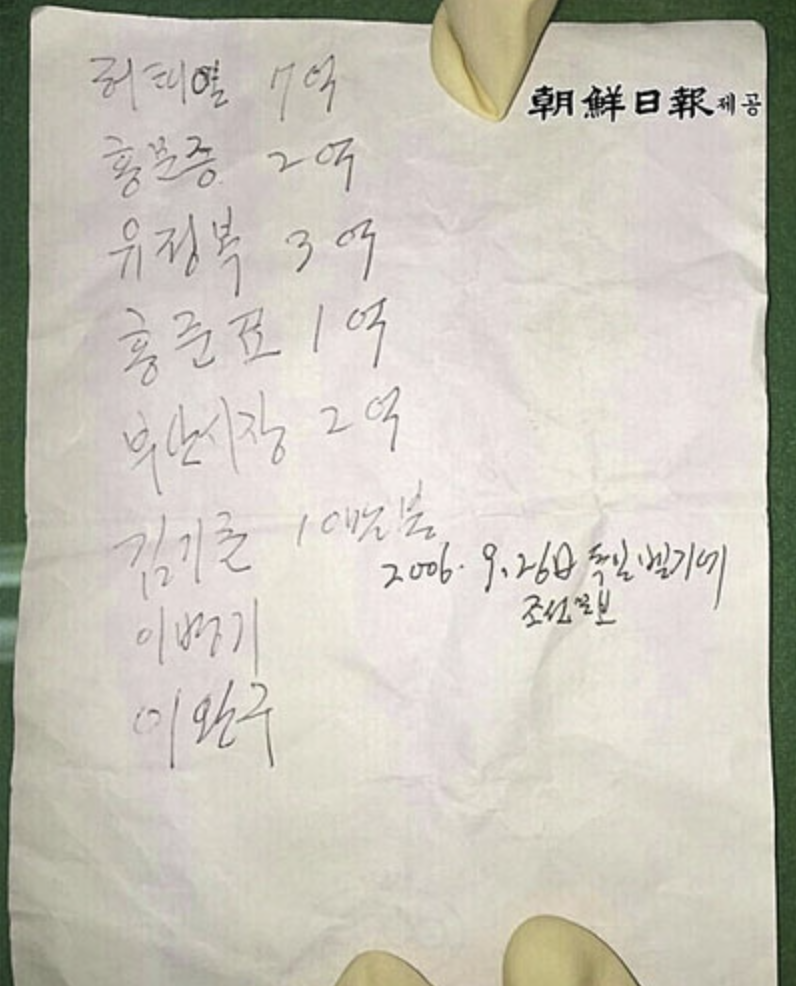 朝鮮日報 제공
허태열 7억
홍문종 2억
유정복 3억
홍준표 1억
부산시장 2억
김기춘 10만불
2006. 9.26日 독일 벨기에
조선일보
이병기
이완구